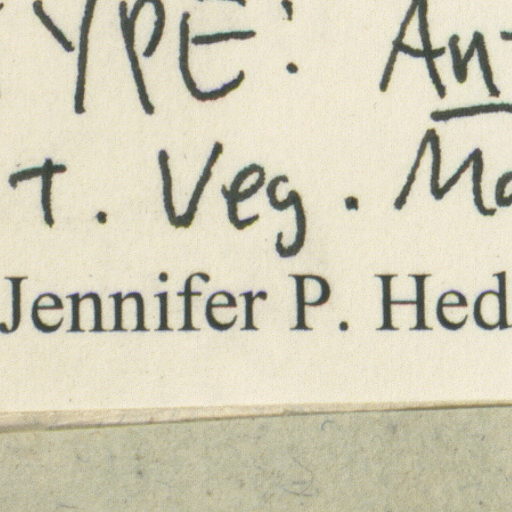 TYPE: An
t. Veg. Ma
Jennifer P. Hed